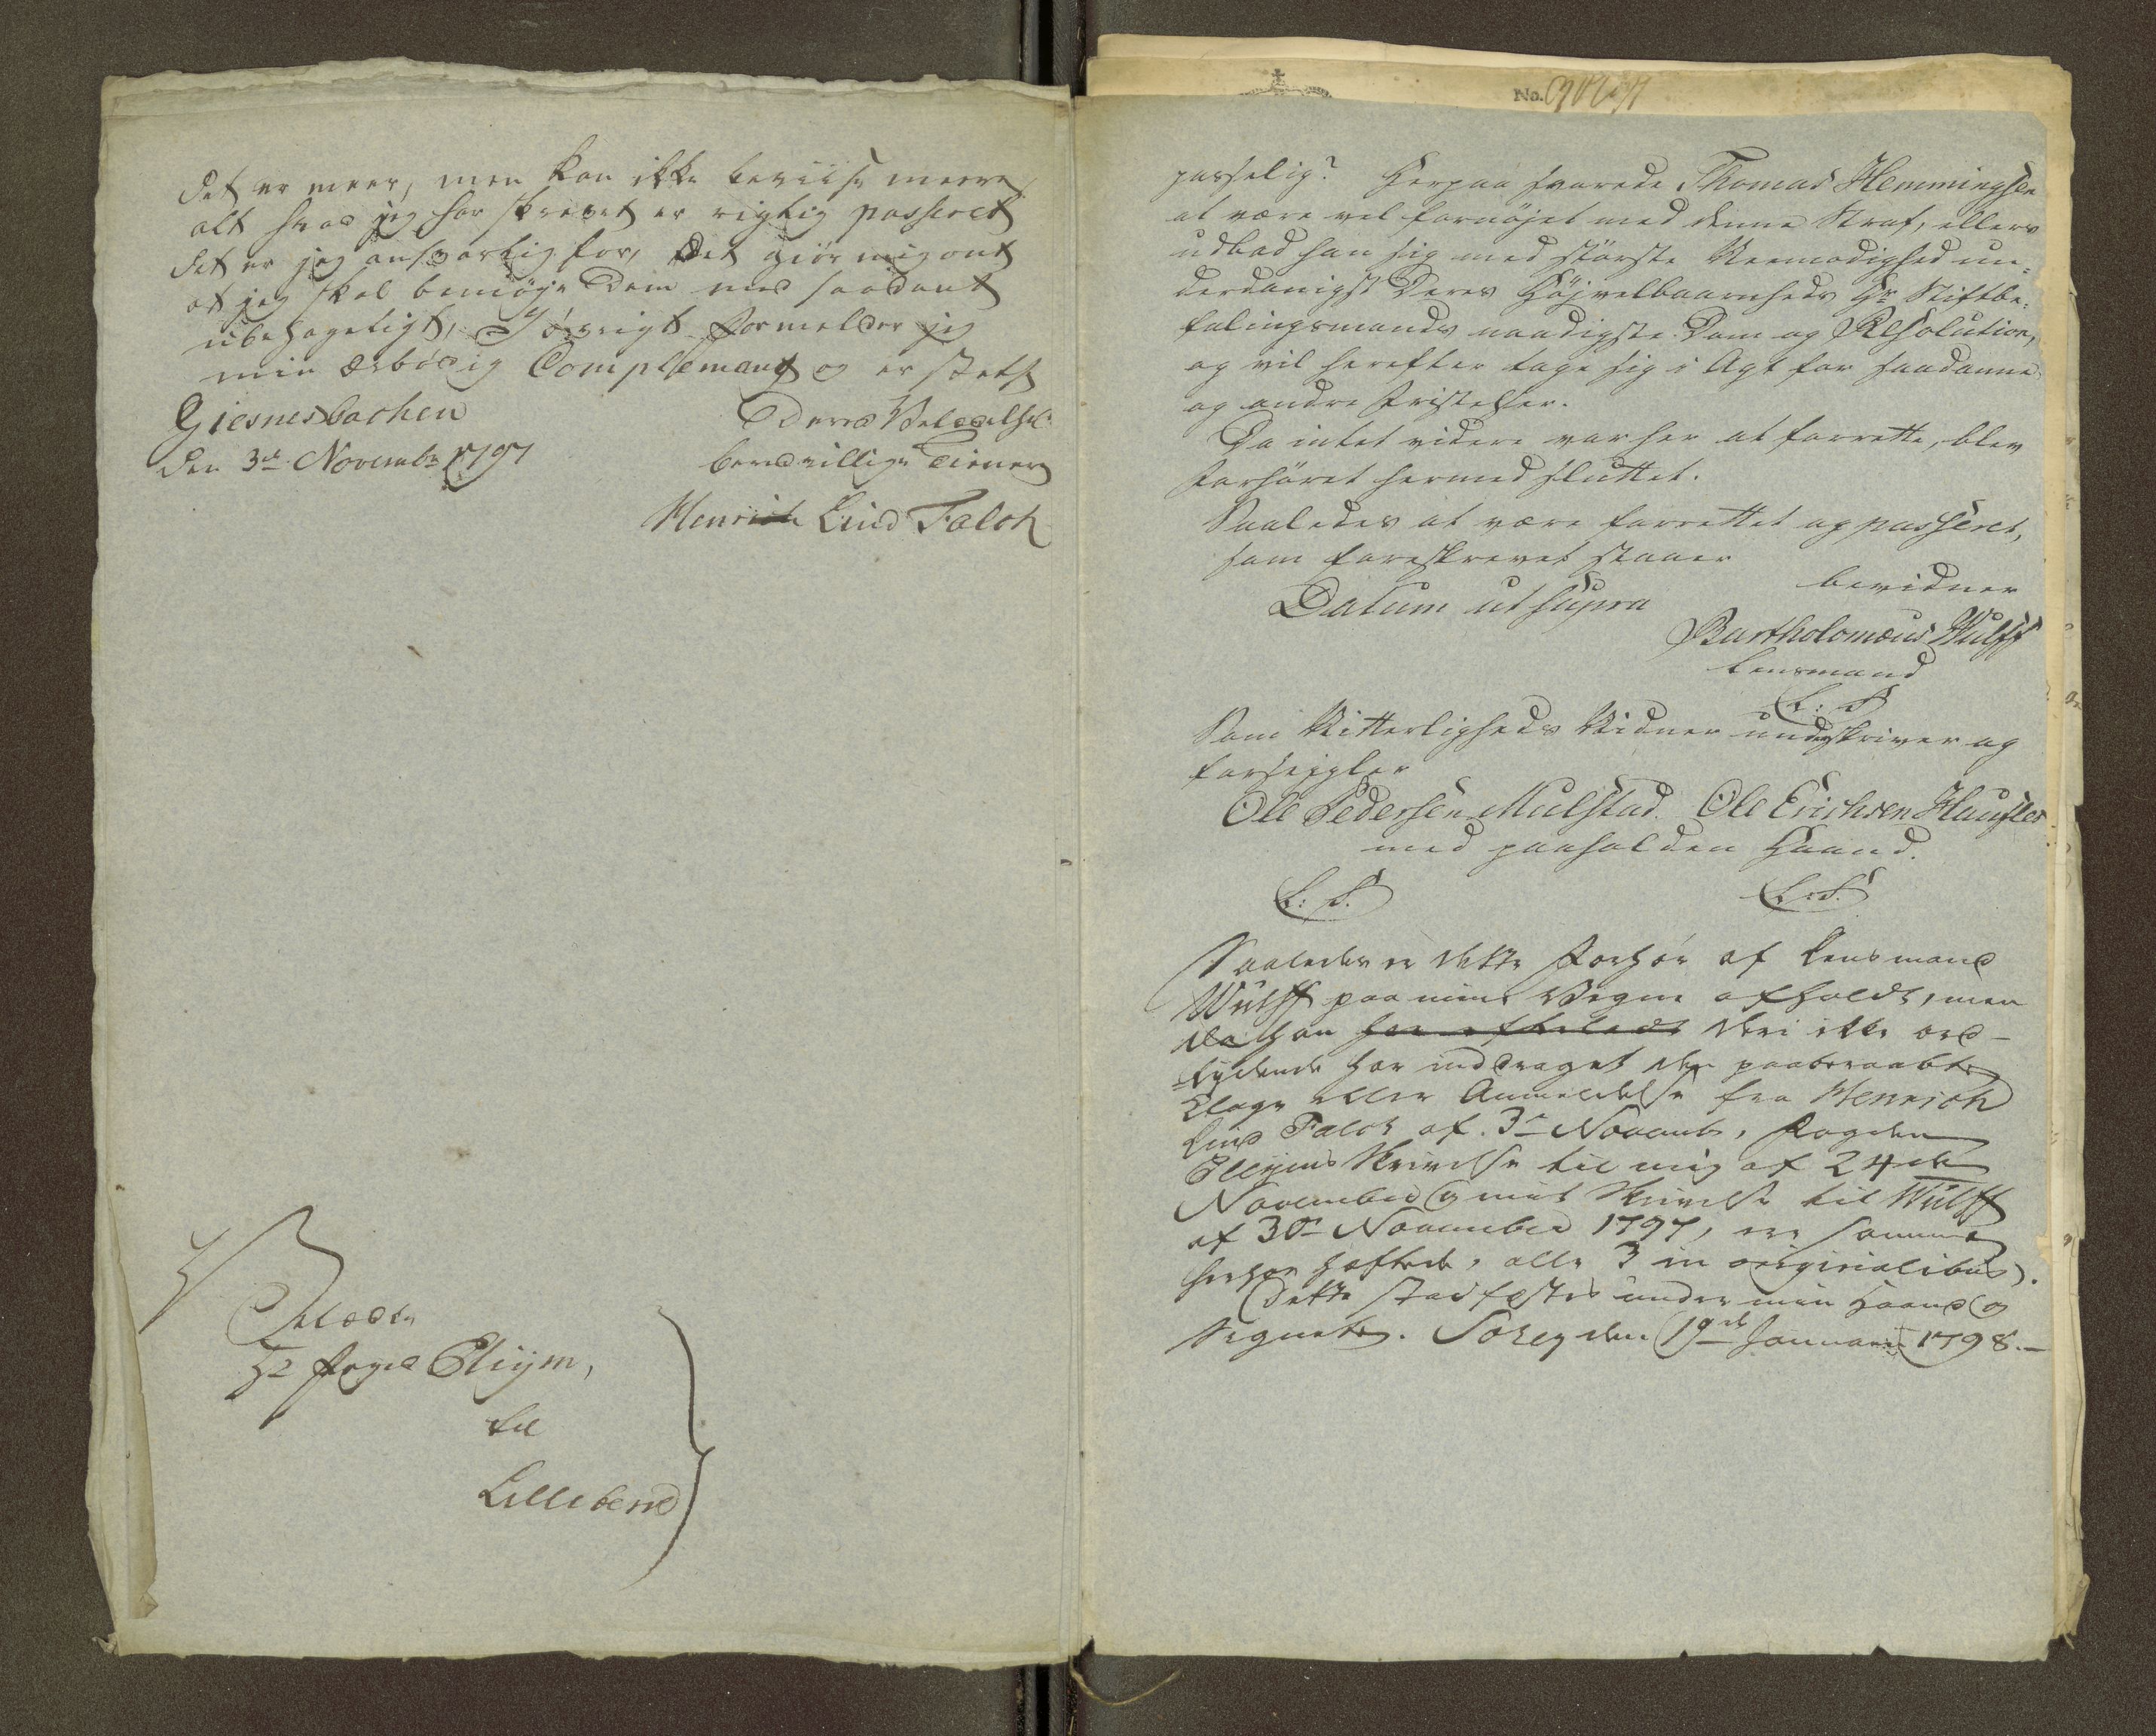 det er meer, men kan ikke beviise meere
alt hvad jeg har skrevet er rigtig passeret
det er jeg ansvarlig for, Det giør mig ont
at jeg skal bemøye Dem med saadant
ubehageligt, I øvrigt formelder jeg
min ærbødig Complemang og er stets
Giesnesbachen
Deres Velædelhs
den 3de Novembr 1797
beredvillige Tiener
Henrich Lind Falch
Velædle
Hr Foged Eliym,
til
Lillebend
No.
passelig? Herpaa svarede Thomas Hemmingsen
at være vel fornøjet med denne Straf, ellers
udbad han sig med største Veemodighed un-
derdanigst Deres Højvelbaarenheds Hr Stiftbe-
falingsmands naadigste Dom og Resolution,
og vil herefter tage sig i Agt for saadanne
og andre Fristelser.
Da intet videre var her at forrette, blev
Forhöret hermed sluttet.
Saaledes at være forrettet og passeret,
som foreskrevet staaer
bevidner
Datum ut supra
Bartholomæus Wulff
Lensmand
L: S
Som Vitterligheds Vidner underskriver og
forseigler
Ole Pedersen Mulstad. Ole Erichsen
med paaholden Haand.
L: S. L: S.
Saaledes er dette Forhör af Lensmand
Wulff paa mine Vegne afholdt, men
da han deri ikke ord-
=lydende har inddraget den paaberaabte
Klage eller Anmeldelse fra Henrich
Lind Falch af 3e Novemb, Fogden
Eliyms Skrivelse til mig af 24de
November og min Skrivelse til Wulff
af 30e November 1797, ere samme
herhos heftede, alle 3 in originalibus.
Dette stadfæstes under min Haand og
Segnete. den 19de Januarii 1798.-